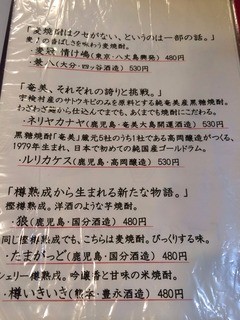 「麦焼酎はクセがない、というのは一部の話。」
麦刀の香ばしさを味わう麦焼酎。
・麦冠 情け嶋(東京・八丈島興発) 480円
・兼八(大分・四ッ谷酒造) 530円
「奄美、それぞれの誇りと挑戦。」
宇検村産のサトウキビのみを原料とする純奄美産黒糖焼酎。
わざわざ から仕込んでまでも、あくまでも焼酎にこだわる。
・ネリヤカナヤ(鹿児島・奄美大島開運酒造) 530円
黒糖焼酎「奄美」蔵元5社のうち1社である高岡醸造がつくる、
1979年生まれ、日本で初めての純国産ゴールドラム。
・ルリカケス(鹿児島・高岡醸造) 530円
「樽熟成から生まれる新たな物語。」
樫樽熟成。洋酒のような芋焼酎。
・狼(鹿児島・国分酒造) 480円
同じ樫樽熟成でも、こちらは麦焼酎。びっくりする味。
・たまがっど(鹿児島・国分酒造) 480円
シェリー樽熟成。吟醸香と甘味の米焼酎。
・樽いきいき(熊本・豊永酒造) 480円